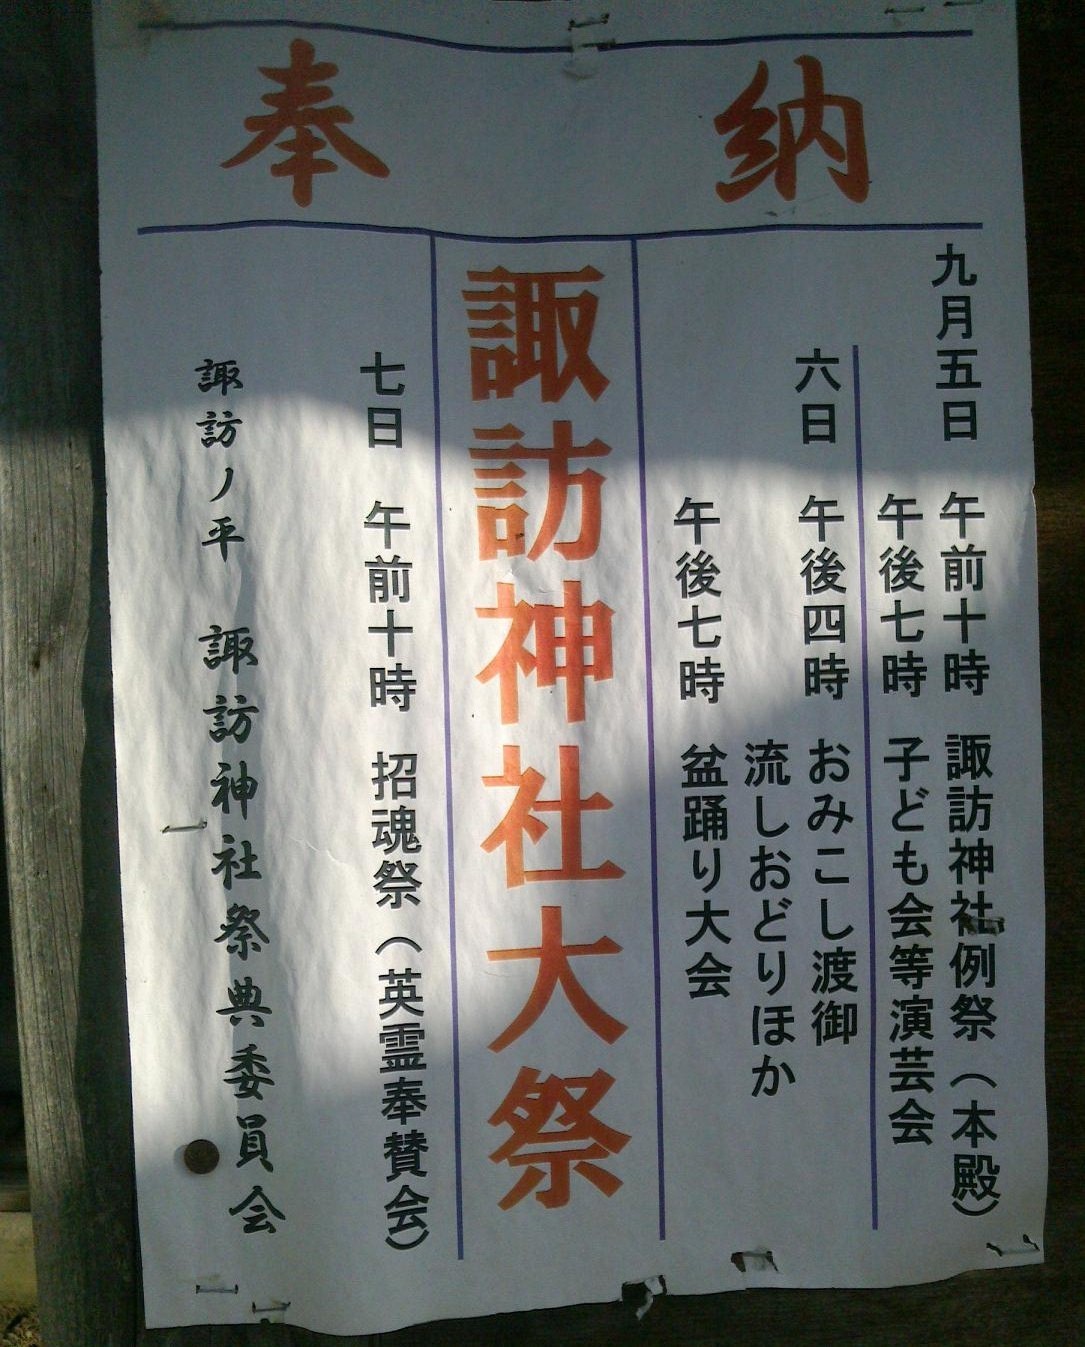 奉納
九月五日 午前十時 諏訪神社例祭（本殿）
午後七時 子ども会等演芸会
六日 午後四時 おみこし渡御
流しおどりほか
午後七時 盆踊り大会
諏訪神社大祭
七日 午前十時 招魂祭（英霊奉賛会）
諏訪ノ平 諏訪神社祭典委員会